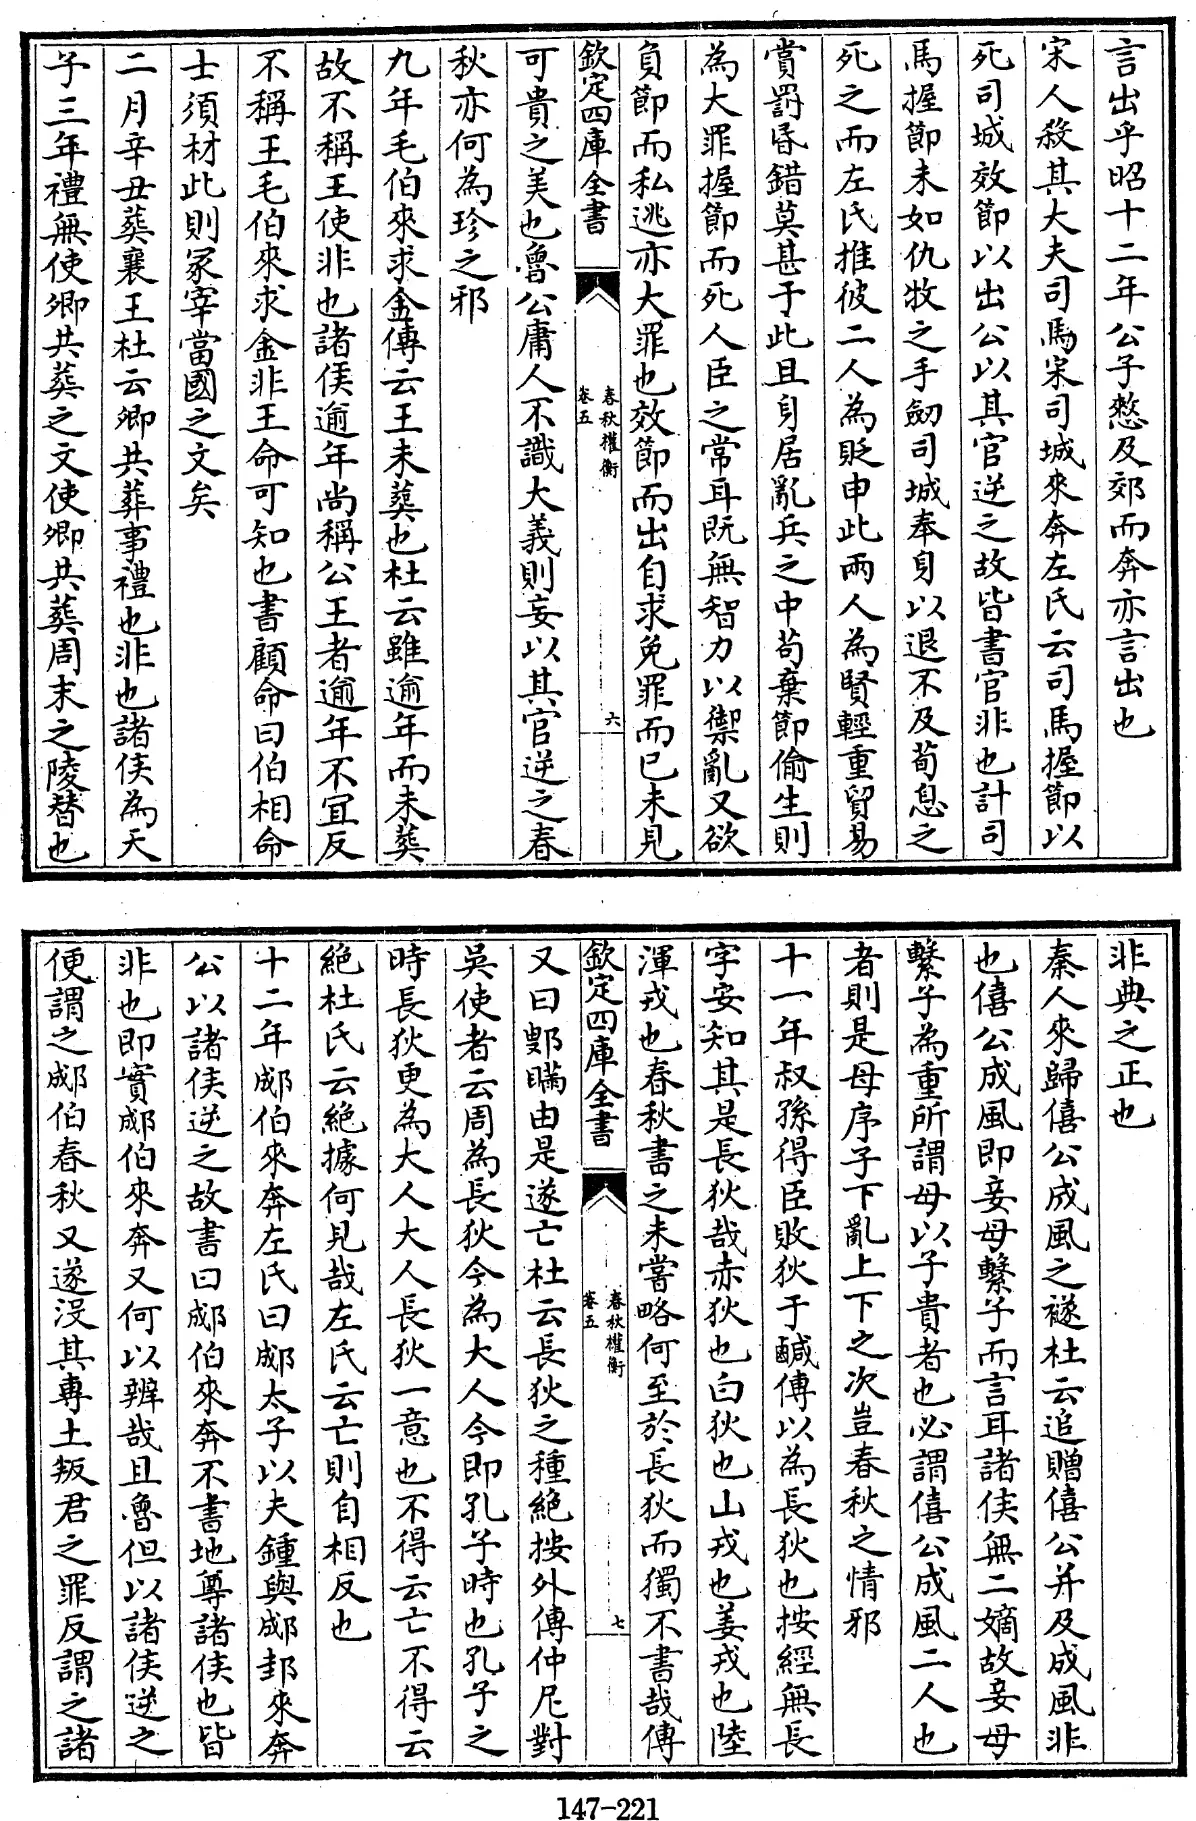 言出乎昭十二年公子憗及郊而奔亦言出也
宋人殺其大夫司馬宋司城來奔左氏云司馬握節以
死司城效節以出公以其官逆之故皆書官非也計司
馬握節未如仇牧之手劒司城奉身以退不及荀息之
死之而左氏推彼二人為貶申此兩人為賢輕重貿易
賞罸昏錯莫甚于此且身居亂兵之中苟棄節偷生則
為大罪握節而死人臣之常耳既無智力以禦亂又欲
負節而私逃亦大罪也效節而出自求免罪而已未見
欽定四庫全書
春秋權衡
卷五
六
可貴之美也魯公庸人不識大義則妄以其官逆之春
秋亦何為珍之邪
九年毛伯來求金傳云王未葬也杜云雖逾年而未葬
故不稱王使非也諸侯逾年尚稱公王者逾年不宜反
不稱王毛伯來求金非王命可知也書顧命曰伯相命
士須材此則冢宰當國之文矣
二月辛丑葬襄王杜云卿共葬事禮也非也諸侯為天
子三年禮無使卿共葬之文使卿共葬周末之陵替也
非典之正也
秦人來歸僖公成風之襚杜云追贈僖公并及成風非
也僖公成風即妾母繫子而言耳諸侯無二嫡故妾母
繫子為重所謂母以子貴者也必謂僖公成風二人也
者則是母序子下亂上下之次豈春秋之情邪
十一年叔孫得臣敗狄于鹹傳以為長狄也按經無長
字安知其是長狄哉赤狄也白狄也山戎也姜戎也陸
渾戎也春秋書之未嘗略何至於長狄而獨不書哉傳
欽定四庫全書
春秋權衡
卷五
七
又曰鄋瞞由是遂亡杜云長狄之種絶按外傳仲尼對
吳使者云周為長狄今為大人今即孔子時也孔子之
時長狄更為大人大人長狄一意也不得云亡不得云
絶杜氏云絶據何見哉左氏云亡則自相反也
十二年郕伯來奔左氏曰郕太子以夫鍾與郕邽來奔
公以諸侯逆之故書曰郕伯來奔不書地尊諸侯也皆
非也即實郕伯來奔又何以辨哉且魯但以諸侯逆之
便謂之郕伯春秋又遂没其專土叛君之罪反謂之諸
147-221